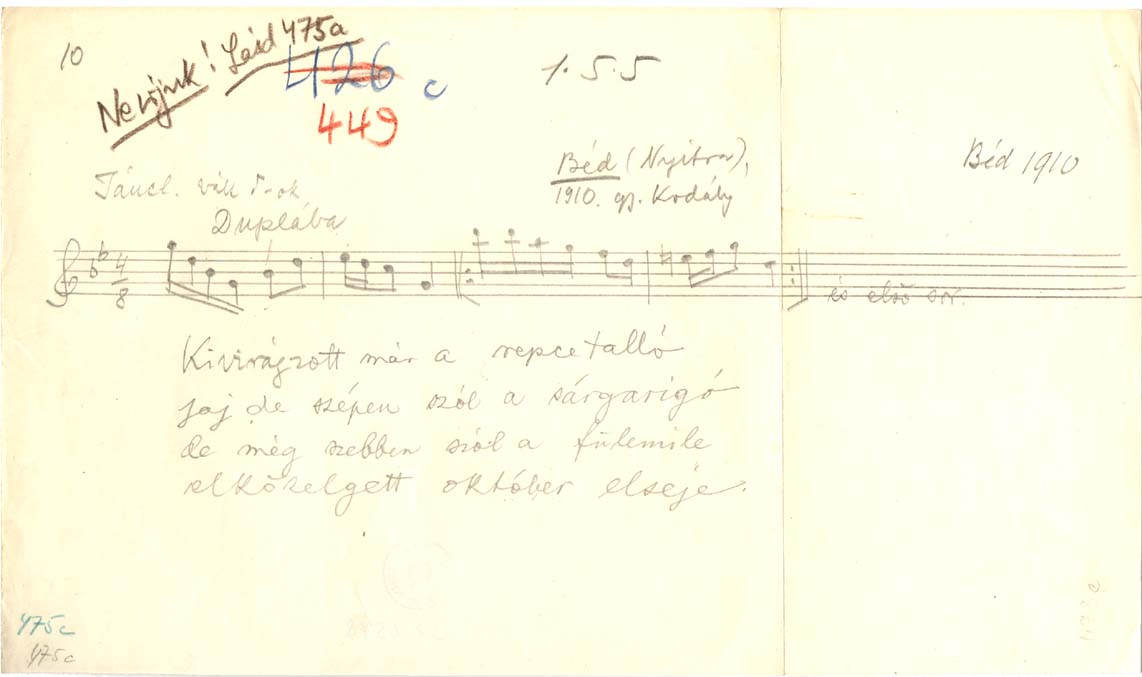 10
Ne írjuk! Lásd 475a
426 c
449
1. 5. 5
Béd (Nyitra),
1910. gy. Kodály
Béd 1910
Táncl.
Duplába
4
8
és első sor.
Kivirágzott már a repcetalló
jaj de szépen szól a sárgarigó
de még szebben szól a fülemile
elközelgett október elseje.
475c
475c